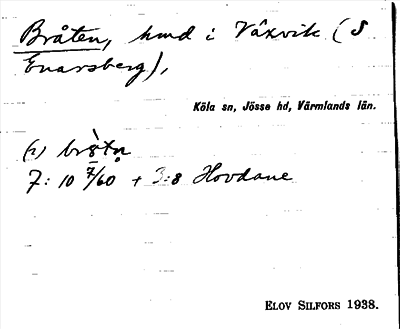 Bråten, hmd i Växvik (S
Enarsberg),
Köla sn, Jösse hd, Värmlands län.
7: 10 7/60 + 3:8 Hovdane
ELOV SILFORS 1938.